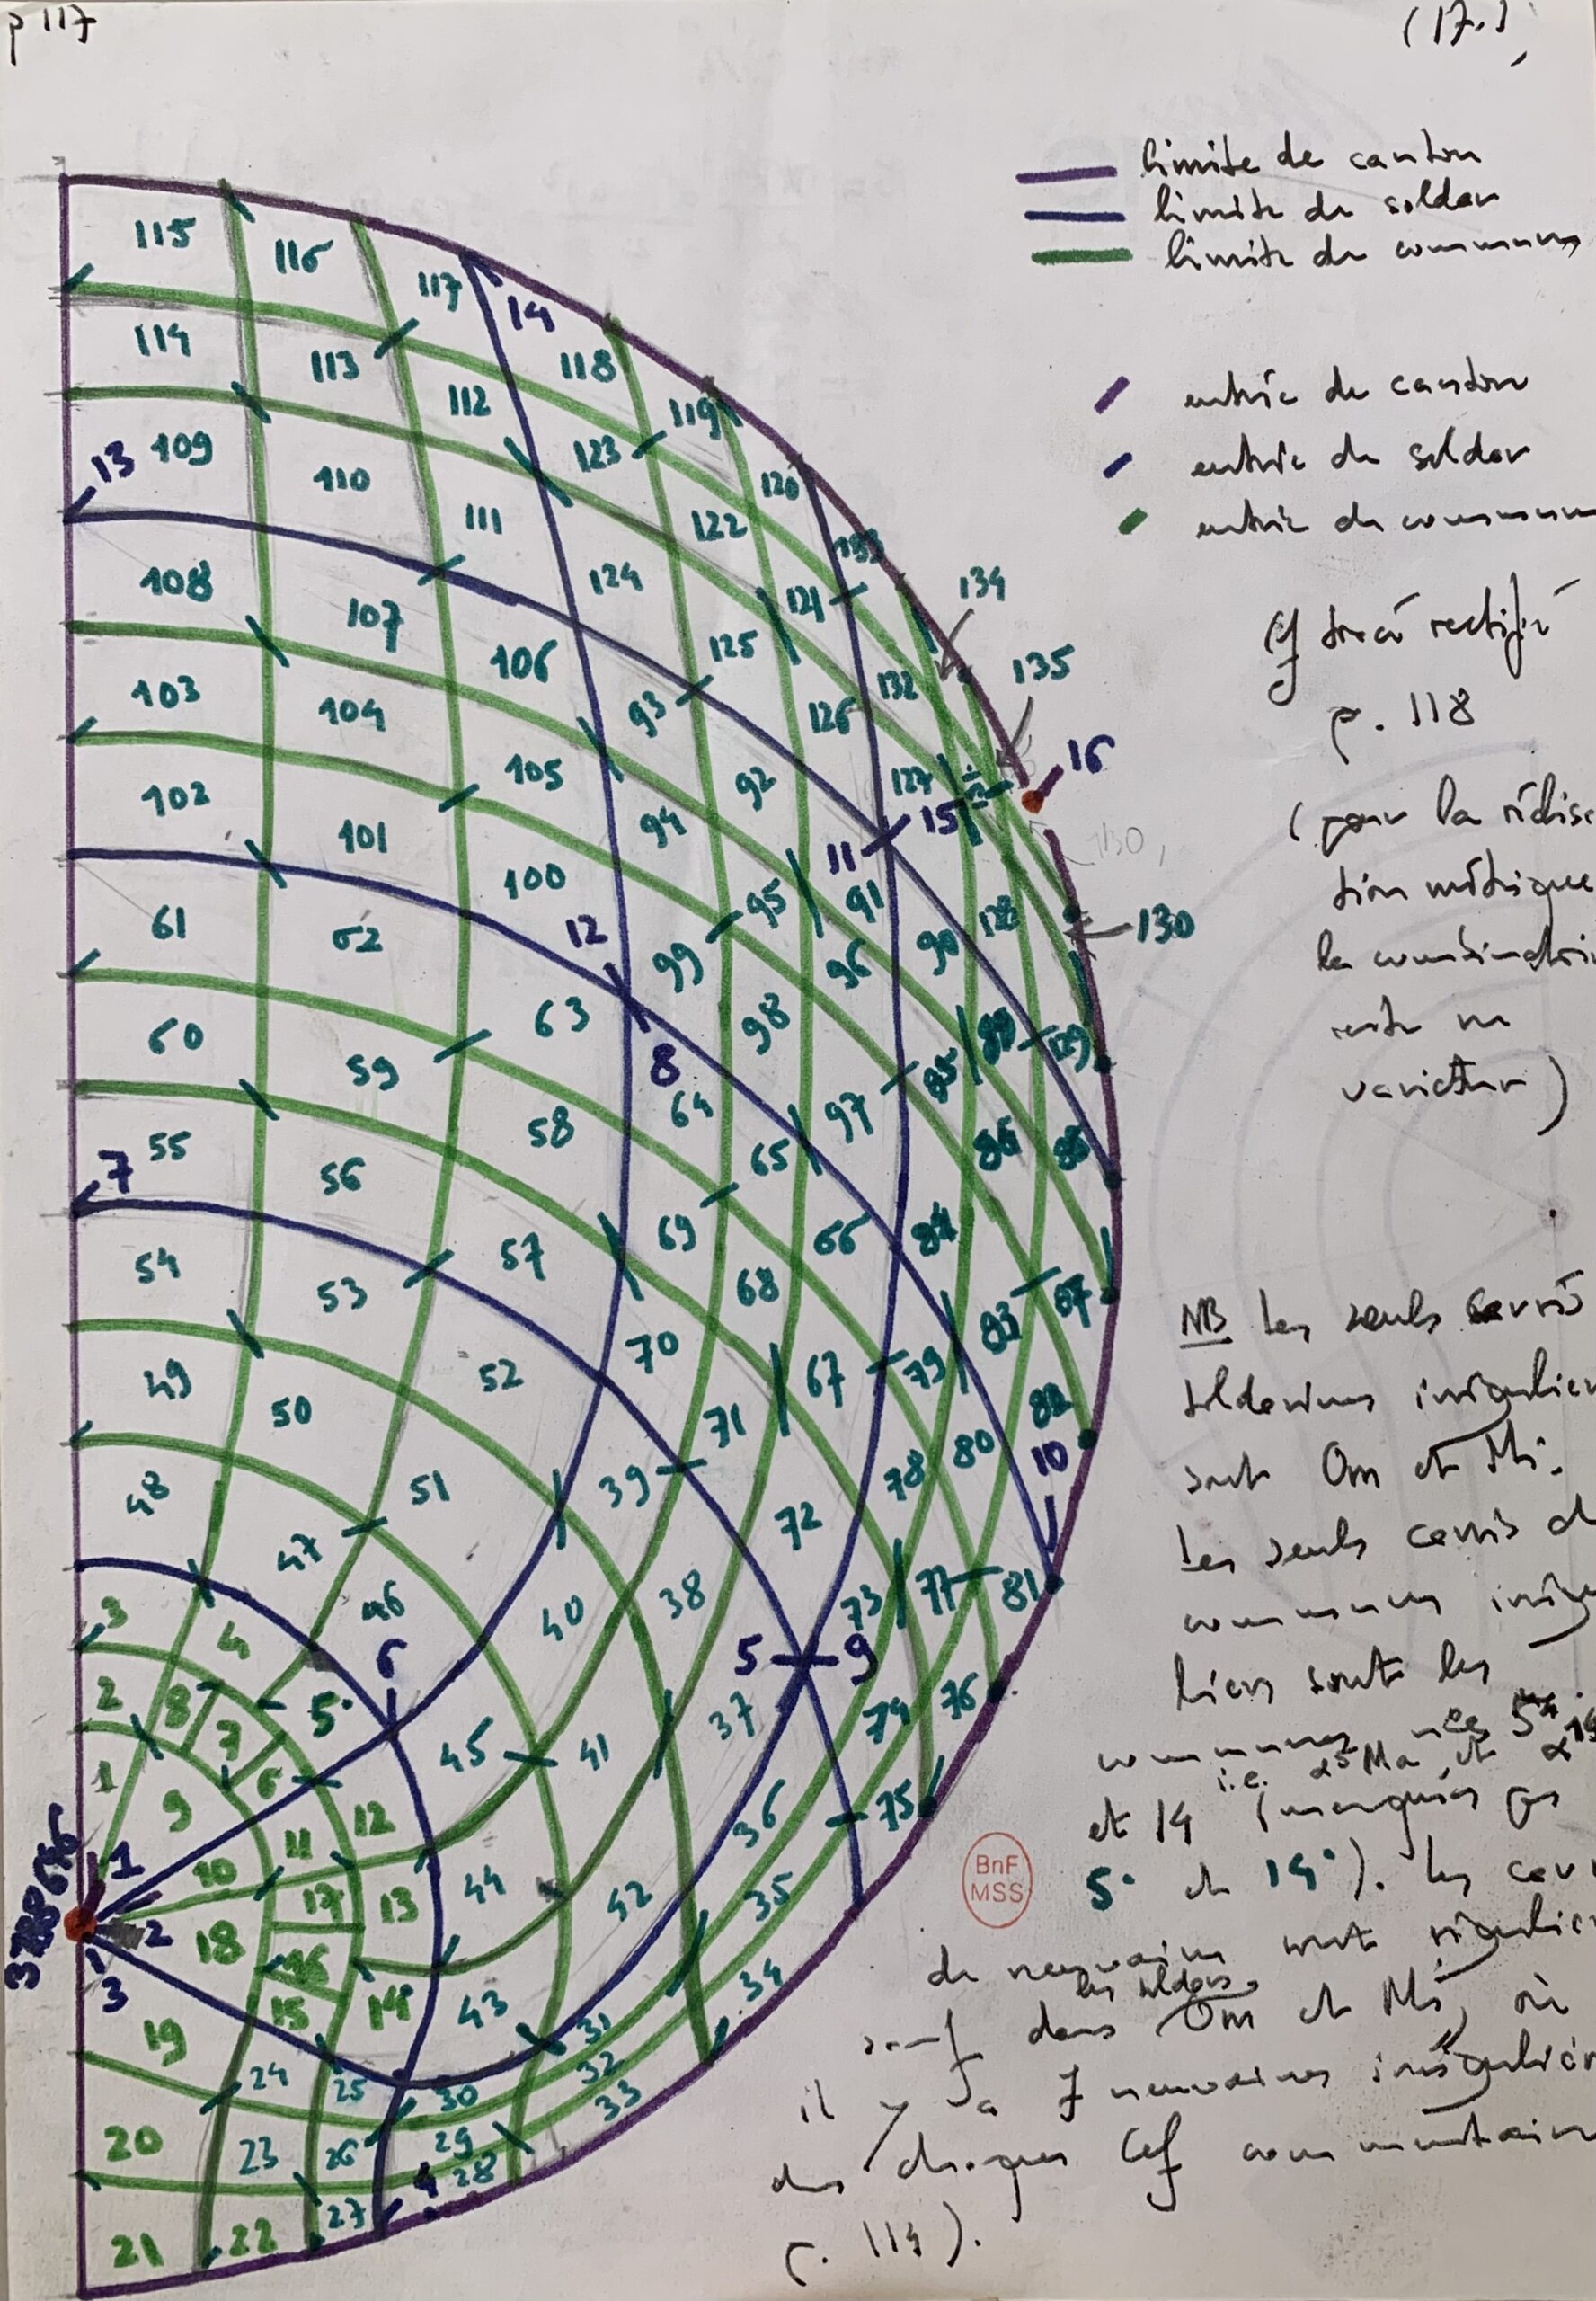 p 117
(17.)
limite de canton
limite de soldar
limite de communes
entrée de canton
entrée de soldar
entrée de commune
115
116
117
14
118
114
113
112
119
123
13
109
110
111
120
122
133
124
134
108
107
121
125
135
106
132
93
103
104
126
16
105
92
127
102
15
94
101
11
130
100
95
91
61
62
12
99
96
90
128
130
63
98
60
59
8
89
129
85
64
97
58
65
86
88
55
7
56
69
66
84
57
54
53
68
83
87
70
67
79
52
49
50
71
82
39
80
10
78
51
48
72
47
77
81
38
3
46
40
73
4
6
5
9
2
8
5•
37
74
76
7
45
41
1
6
9
36
75
12
11
1
10
44
42
35
17
13
2
18
16
3
34
15
14•
43
31
19
32
24
25
30
33
20
23
26
29
4
28
27
21
22
Cf tracé rectifié
p. 118
(pour la
tion métrique
la
reste ne
varietur)
NB Les seuls carrés
irréguliers
sont Om et Mi.
Les seuls carrés de
communes
liers sont les
communes nos 5
i.e. Ma et
et 14 (marqués par
5• et 14•). Les
de neuvaine sont
les soldars
sauf dans Om et Mi, où
il y a 7 neuvaines
des disques (cf commentaire
p. 114).
BnF
MSS